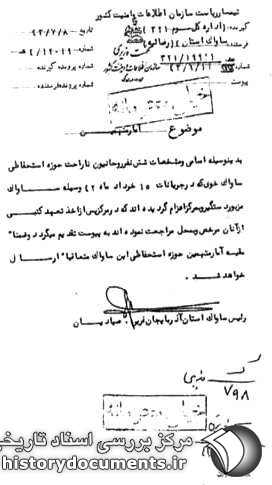 تیمسار ریاست سازمان اطلاعات و امنیت کشور
گیرنده : (اداره کل سوم ۳۲۱)
تاریخ : ۴۳/۷/۸
فرستنده : ساواک استان ۴ (رضائیه)
شماره : ۴/۱۲۰۱۹
شماره پرونده گیرنده
شماره پرونده فرستنده
پیوست
خیلی محرمانه
موضوع
بدینوسیله اسامی و مشخصات شش نفر روحانیون ناراحت حوزه استحفاظی
ساواک خوی که در جریانات ۱۵ خرداد ماه ۴۲ وسیله ساواک
مزبور دستگیر و بمرکز اعزام گردیده اند که در مرکز پس از اخذ تعهد کتبی
از آنان مرخص و بمحل مراجعت نموده اند به پیوست تقدیم میگردد و ضمنا"
بقیه آمار متهمین حوزه استحفاظی این ساواک متعاقبا" ارسال
خواهد شد .
رئیس ساواک استان آذربایجان غربی . صیادیان
۷۹۸
خیلی محرمانه
مرکز بررسی اسناد تاریخی
historydocuments.ir